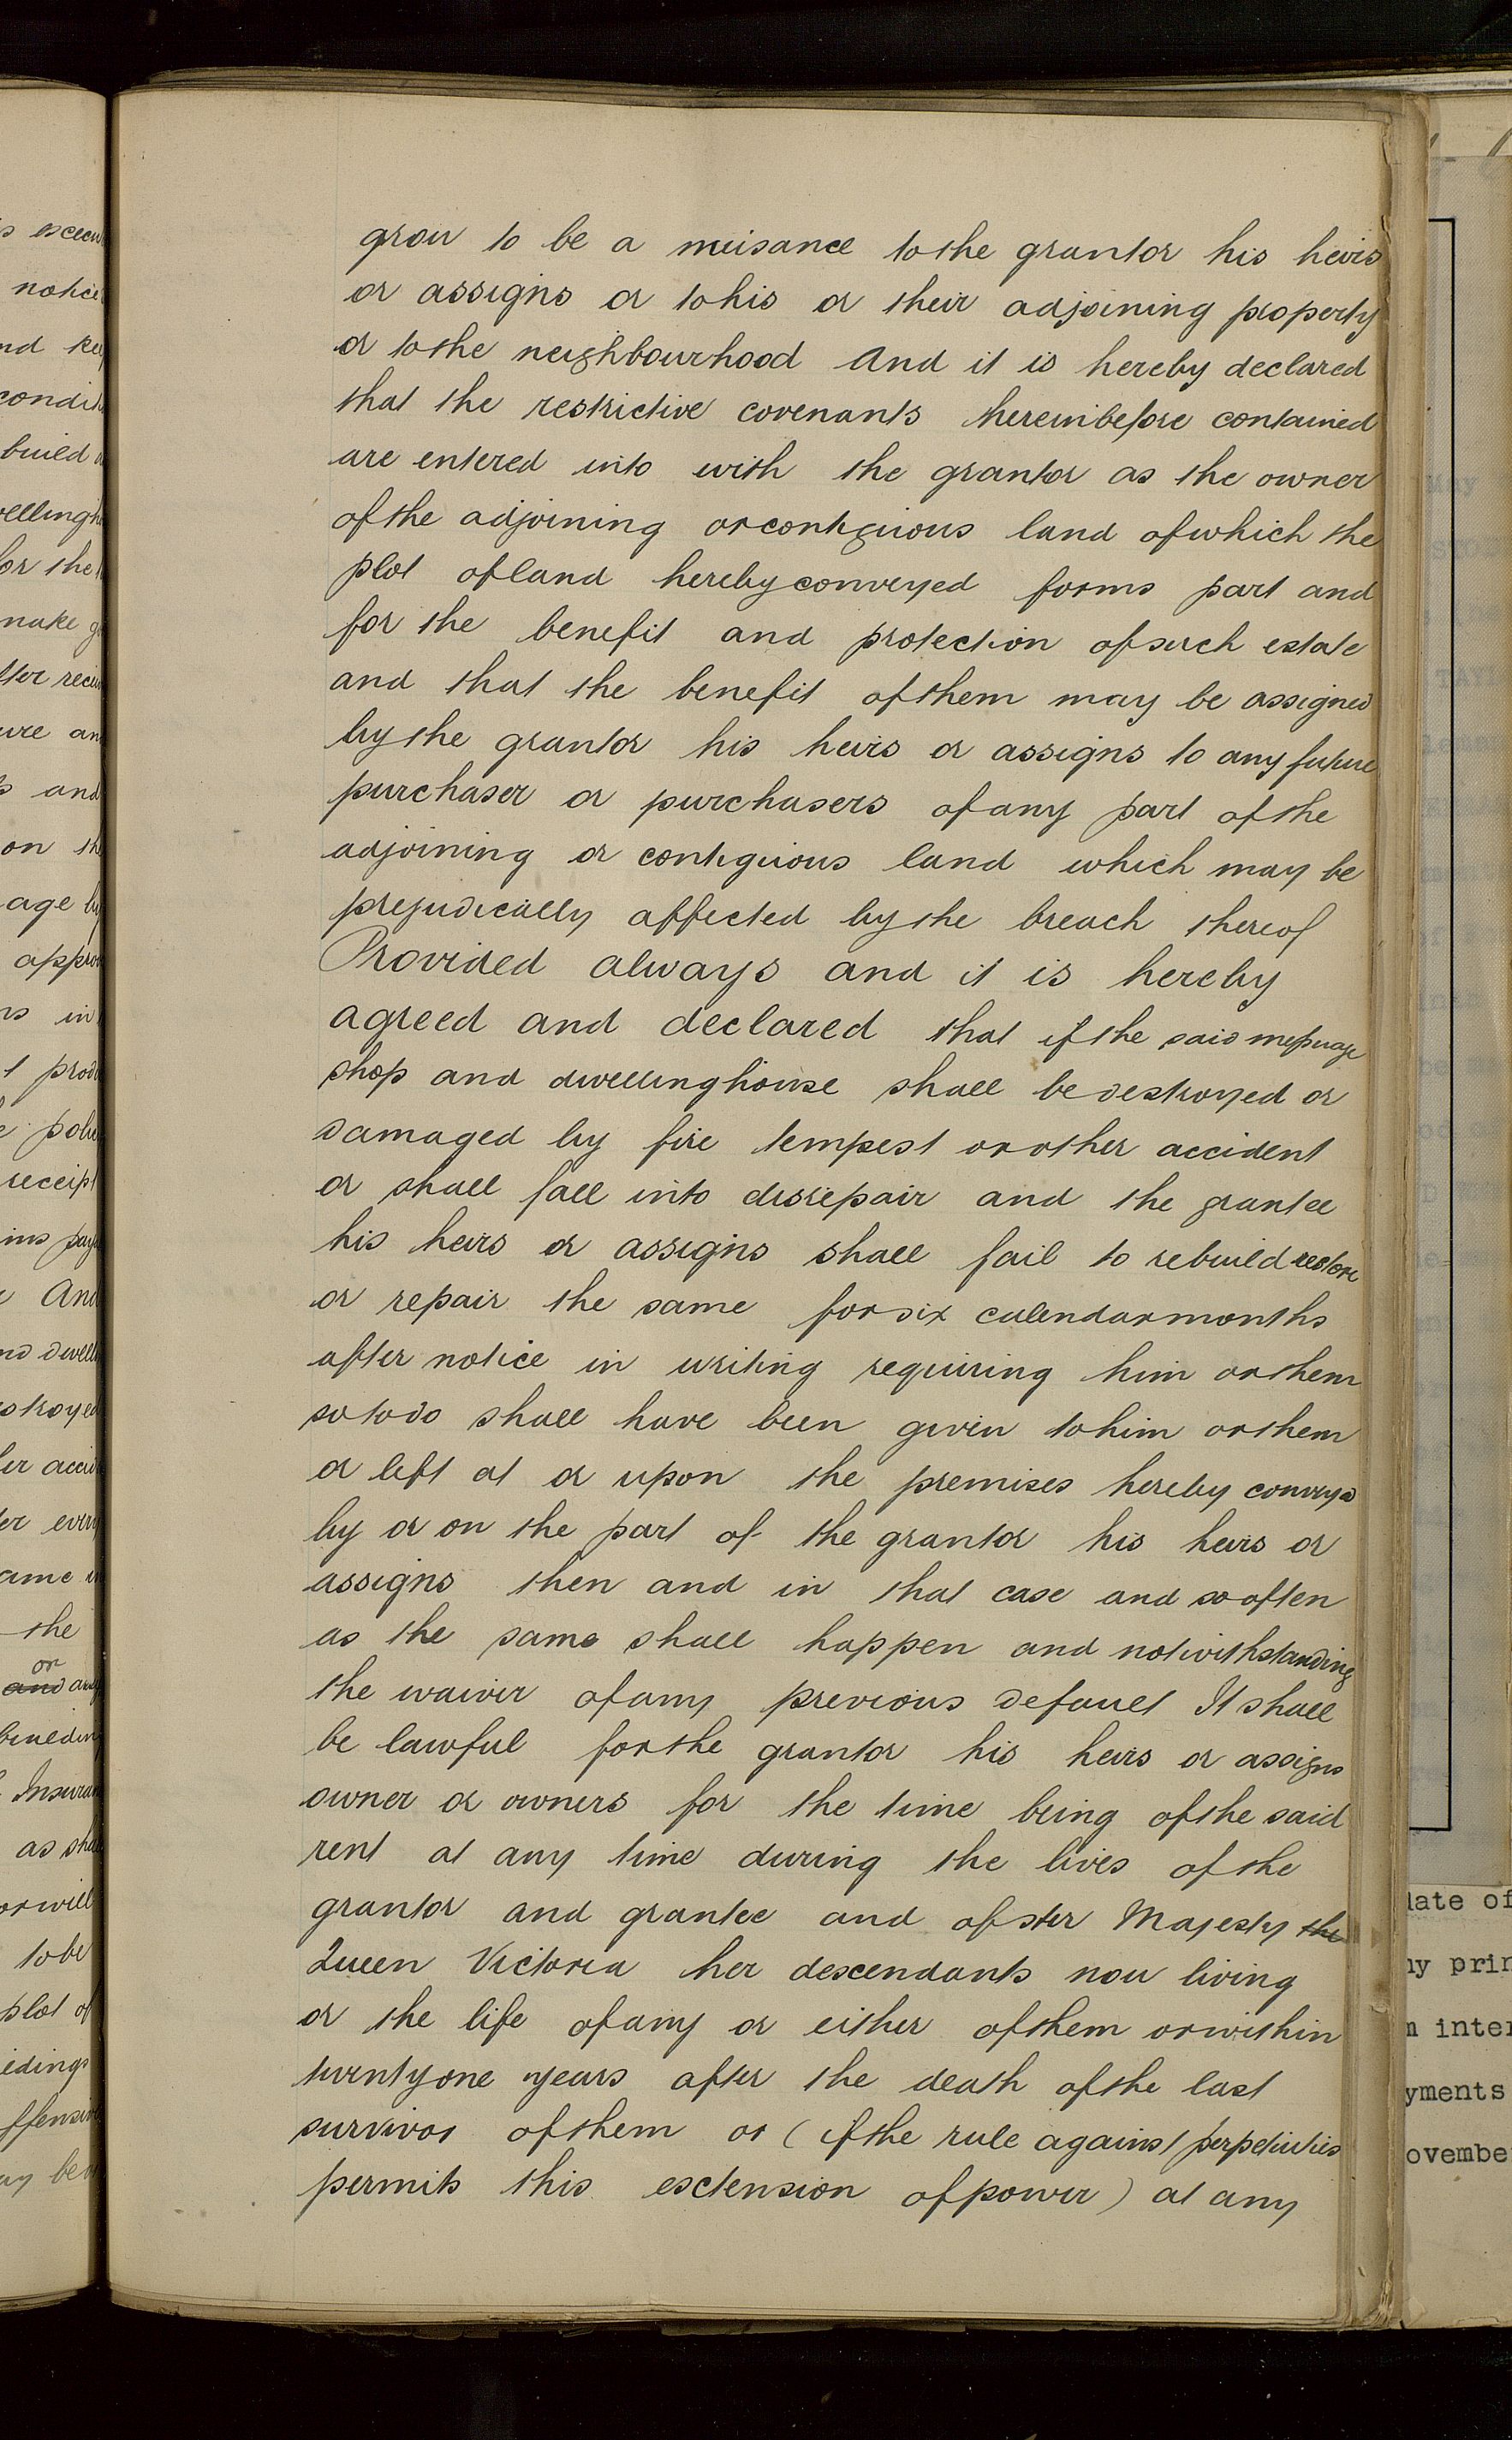 grow to be a nuisance to the grantor his heirs
or assigns or to his or their adjoining property
or to the neighbourhood And it is hereby declared
that the restrictive covenants hereinbefore contained
are entered into with the grantor as the owner
of the adjoining or contiguous land of which the
plot of land hereby conveyed forms part and
for the benefit and protection of such estate
and that the benefit of them may be assigned
by the grantor his heirs or assigns to any future
purchaser or purchasers of any part of the
adjoining or contiguous land which may be
prejudically affected by the breach thereof
Provided always and it is hereby
agreed and declared that if the said messuage
shop and dwellinghouse shall be destroyed or
damaged by fire tempest or other accident
or shall fall into disrepair and the grantee
his heirs or assigns shall fail to rebuild restore
or repair the same for six calendar months
after notice in writing requiring him or them
so to do shall have been given to him or them
or left at or upon the premises hereby conveyed
by or on the part of the grantor his heirs or
assigns then and in that case and so often
as the same shall happen and notwithstanding
the waiver of any previous default It shall
be lawful for the grantor his heirs or assigns
owner or owners for the time being of the said
rent at any time during the lives of the
grantor and grantee and of Her Majesty the
Queen Victoria her descendants now living
or the life of any or either of them or within
twentyone years after the death of the last
survivor of them or (if the rule against perpetuities
permits this extension of power) at any
notice
condit
build
for the
and
on
age
in
receipt
And
the
or
and
as
to be
plot of
late of
inter
yments
ovembe